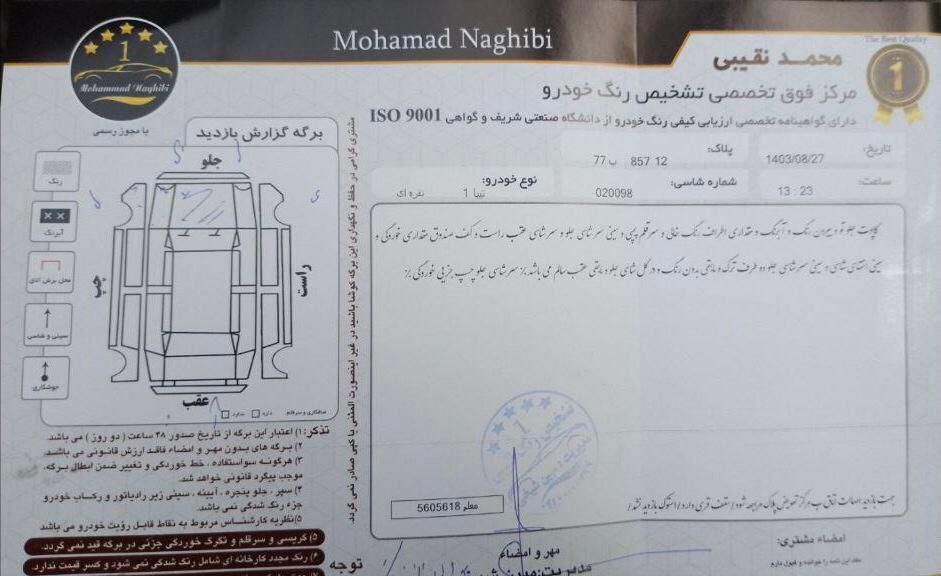 Mohamad Naghibi
The Best Quality
1
1
Mohammad Naghibi
با مجوز رسمی
محمد نقیبی
مرکز فوق تخصصی تشخیص رنگ خودرو
دارای گواهینامه تخصصی ارزیابی کیفی رنگ خودرو از دانشگاه صنعتی شریف و گواهی ISO 9001
تاریخ: 1403/08/27
پلاک: 12 857 ب 77
ساعت: 13 : 23
شماره شاسی: 020098
نوع خودرو: تیبا 1 نقره ای
کاپوت جلو تو و بیرون رنگ و آبرنگ و مقداری اطراف رنگ خالی و سر قلم چپی و سینی سر شاسی جلو و سر شاسی عقب راست و کف صندوق مقداری خوردگی و
سینی انتهای شاسی و سینی سر شاسی جلو دو طرف ترک و مابقی بدون رنگ و در کل شاسی جلو و مابقی عقب سالم می باشد ./ سر شاسی جلو چپ جزیی خوردگی ./
جهت بازدید اصالت اتاق به مرکز تعویض پلاک مراجعه شود / سقف قری دارد / استوک بازدید نشد /
معلم 5605618
امضاء مشتری:
مفاد این نامه را خوانده و قبول دارم
مهر و امضاء
برگه گزارش بازدید
جلو
راست
چپ
عقب
رنگ
آبرنگ
محل برش اتاق
سینی و شاسی
جوشکاری
صافکاری و سرقلم دارد ندارد
مشتری گرامی در حفظ و نگهداری این برگه کوشا باشید در غیر اینصورت المثنی یا کپی صادر نمی گردد.
تذکر: ۱) اعتبار این برگه از تاریخ صدور ۴۸ ساعت ( دو روز ) می باشد.
۲) برگه های بدون مهر و امضاء فاقد ارزش قانونی می باشد.
۳) هرگونه سواستفاده ، خط خوردگی و تغییر ضمن ابطال برگه،
موجب پیگرد قانونی خواهد شد.
۴) سپر ، جلو پنجره ، آیینه ، سینی زیر رادیاتور و رکاب خودرو
جزء رنگ شدگی نمی باشد.
۵) نظریه کارشناس مربوط به نقاط قابل رؤیت خودرو می باشد
۵) گریسی و سرقلم و تگرگ خوردگی جزئی در برگه قید نمی گردد.
۶) رنگ مجدد کارخانه ای شامل رنگ شدگی نمی شود و کسر قیمت ندارد.
توجه